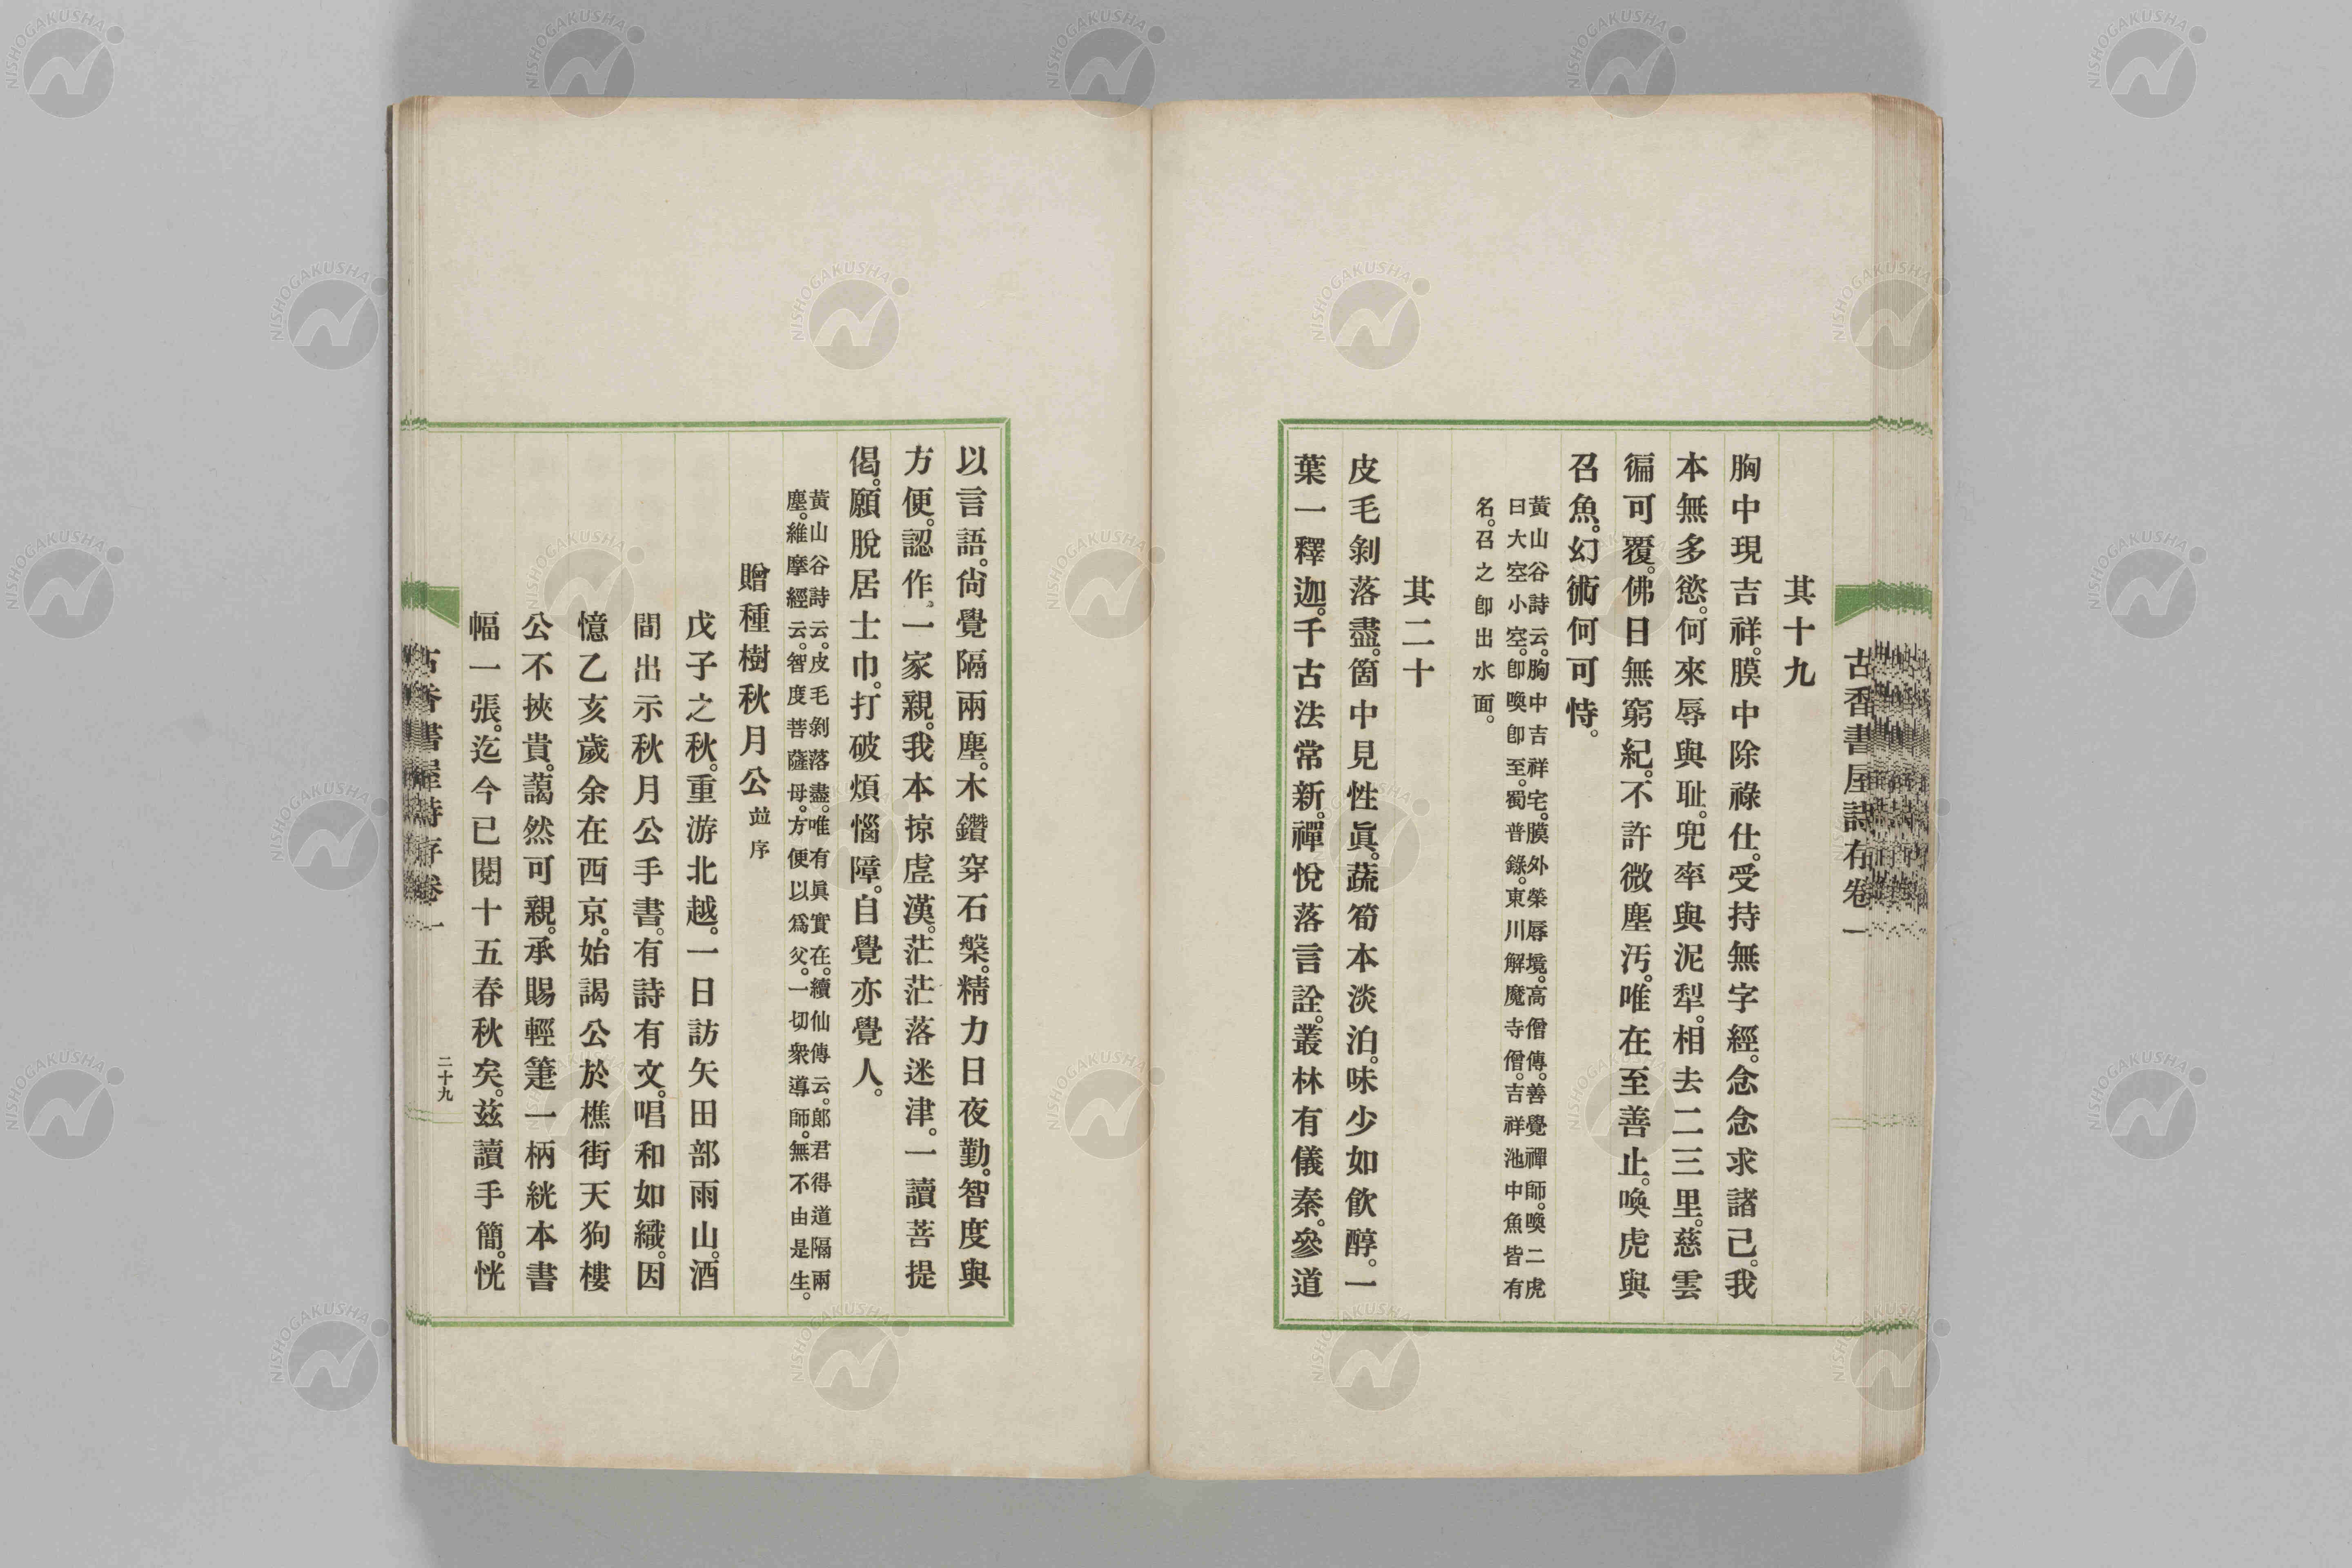 古香書屋詩存卷一
其十九
胸中現吉祥。膜中除祿仕。受持無字經。念念求諸己。我
本無多慾。何來辱與恥。兜率與泥犁。相去二三里。慈雲
徧可覆。佛日無窮紀。不許微塵汚。唯在至善止。喚虎與
召魚。幻術何可恃。
黃山谷詩云。胸中吉祥宅。膜外榮辱境。高僧傳。善覺禪師。喚二虎
曰大空小空。卽喚卽至。蜀普錄。東川解魔寺僧。吉祥池中魚皆有
名。召之卽出水面。
其二十
皮毛剝落盡。箇中見性眞。蔬筍本淡泊。味少如飮醇。一
葉一釋迦。千古法常新。禪悅落言詮。叢林有儀秦。參道
以言語。尙覺隔兩塵。木鑽穿石槃。精力日夜勤。智度與
方便。認作一家親。我本掠虛漢。茫茫落迷津。一讀菩提
偈。願脫居士巾。打破煩惱障。自覺亦覺人。
黃山谷詩云。皮毛剝落盡。唯有眞實在。續仙傳云。郞君得道隔兩
塵。維摩經云。智度菩薩母。方便以爲父。一切衆導師。無不由是生。
贈種樹秋月公 竝序
戊子之秋。重游北越。一日訪矢田部雨山。酒
間出示秋月公手書。有詩有文。唱和如織。因
憶乙亥歲余在西京。始謁公於樵街天狗樓
公不挾貴。藹然可親。承賜輕箑一柄絖本書
幅一張。迄今已閱十五春秋矣。茲讀手簡。恍
古香書屋詩存卷一
二十九
NISHOGAKUSHA